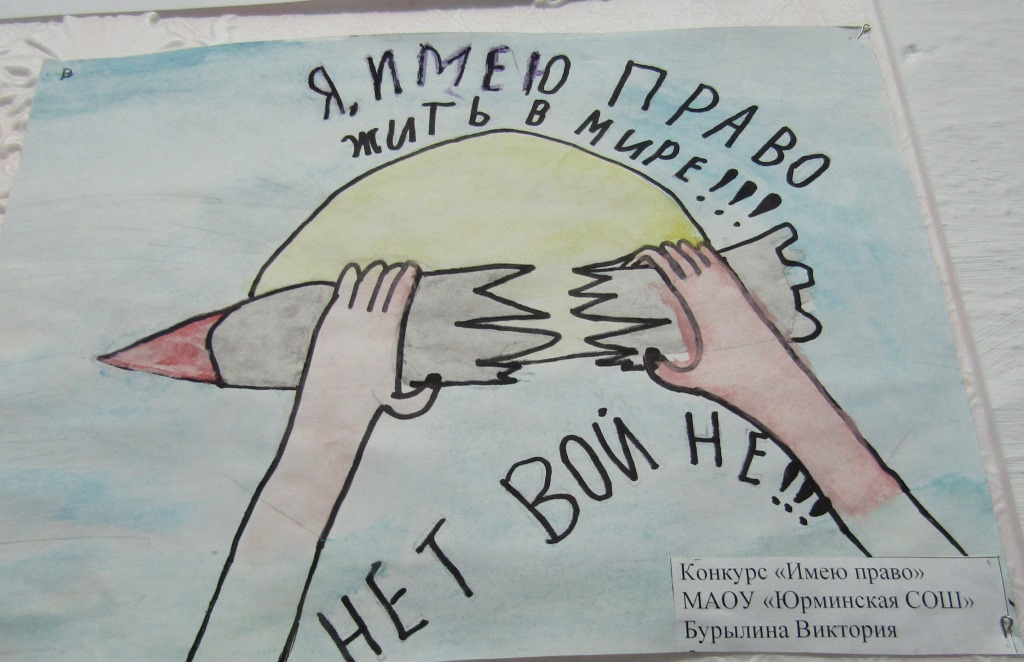 Я, ИМЕЮ ПРАВО
ЖИТЬ В МИРЕ!!!
НЕТ ВОЙНЕ!!!
Конкурс «Имею право»
МАОУ «Юрминская СОШ»
Бурылина Виктория